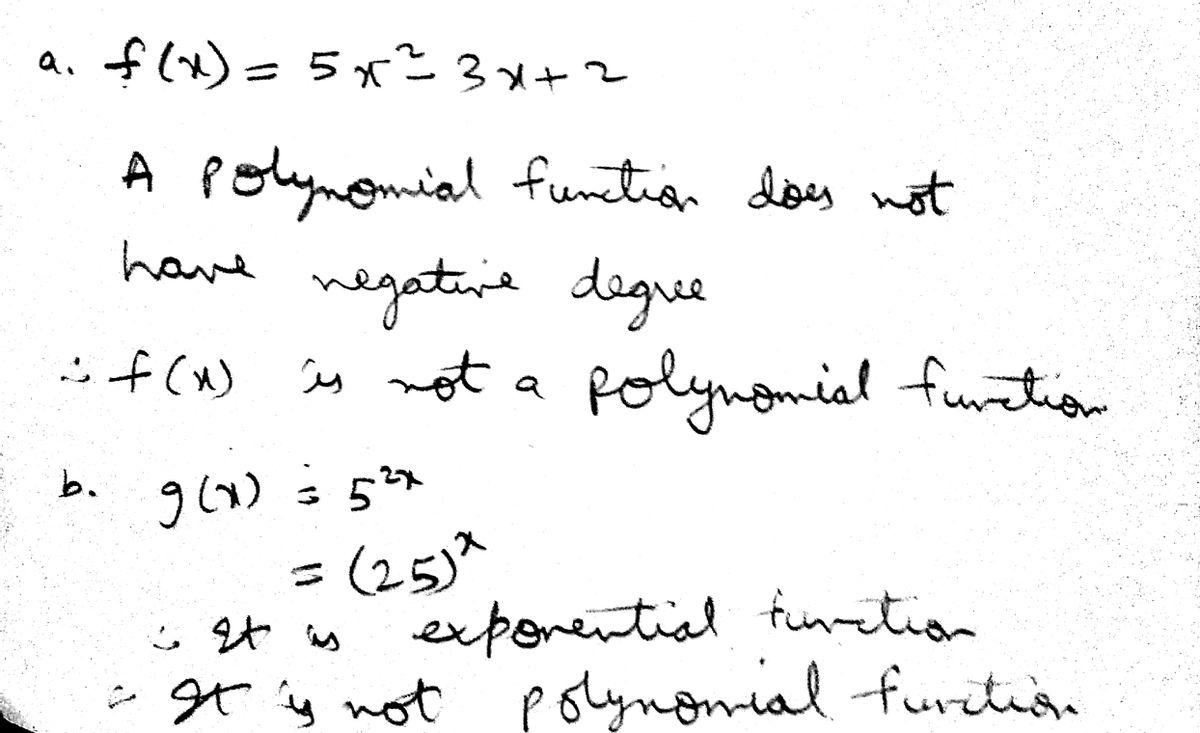 a. f(x) = 5x² - 3x + 2
A polynomial function does not
have negative degree
∴ f(x) is not a polynomial function
b. g(x) = 5²ˣ
= (25)ˣ
∴ It is exponential function
∴ It is not polynomial function